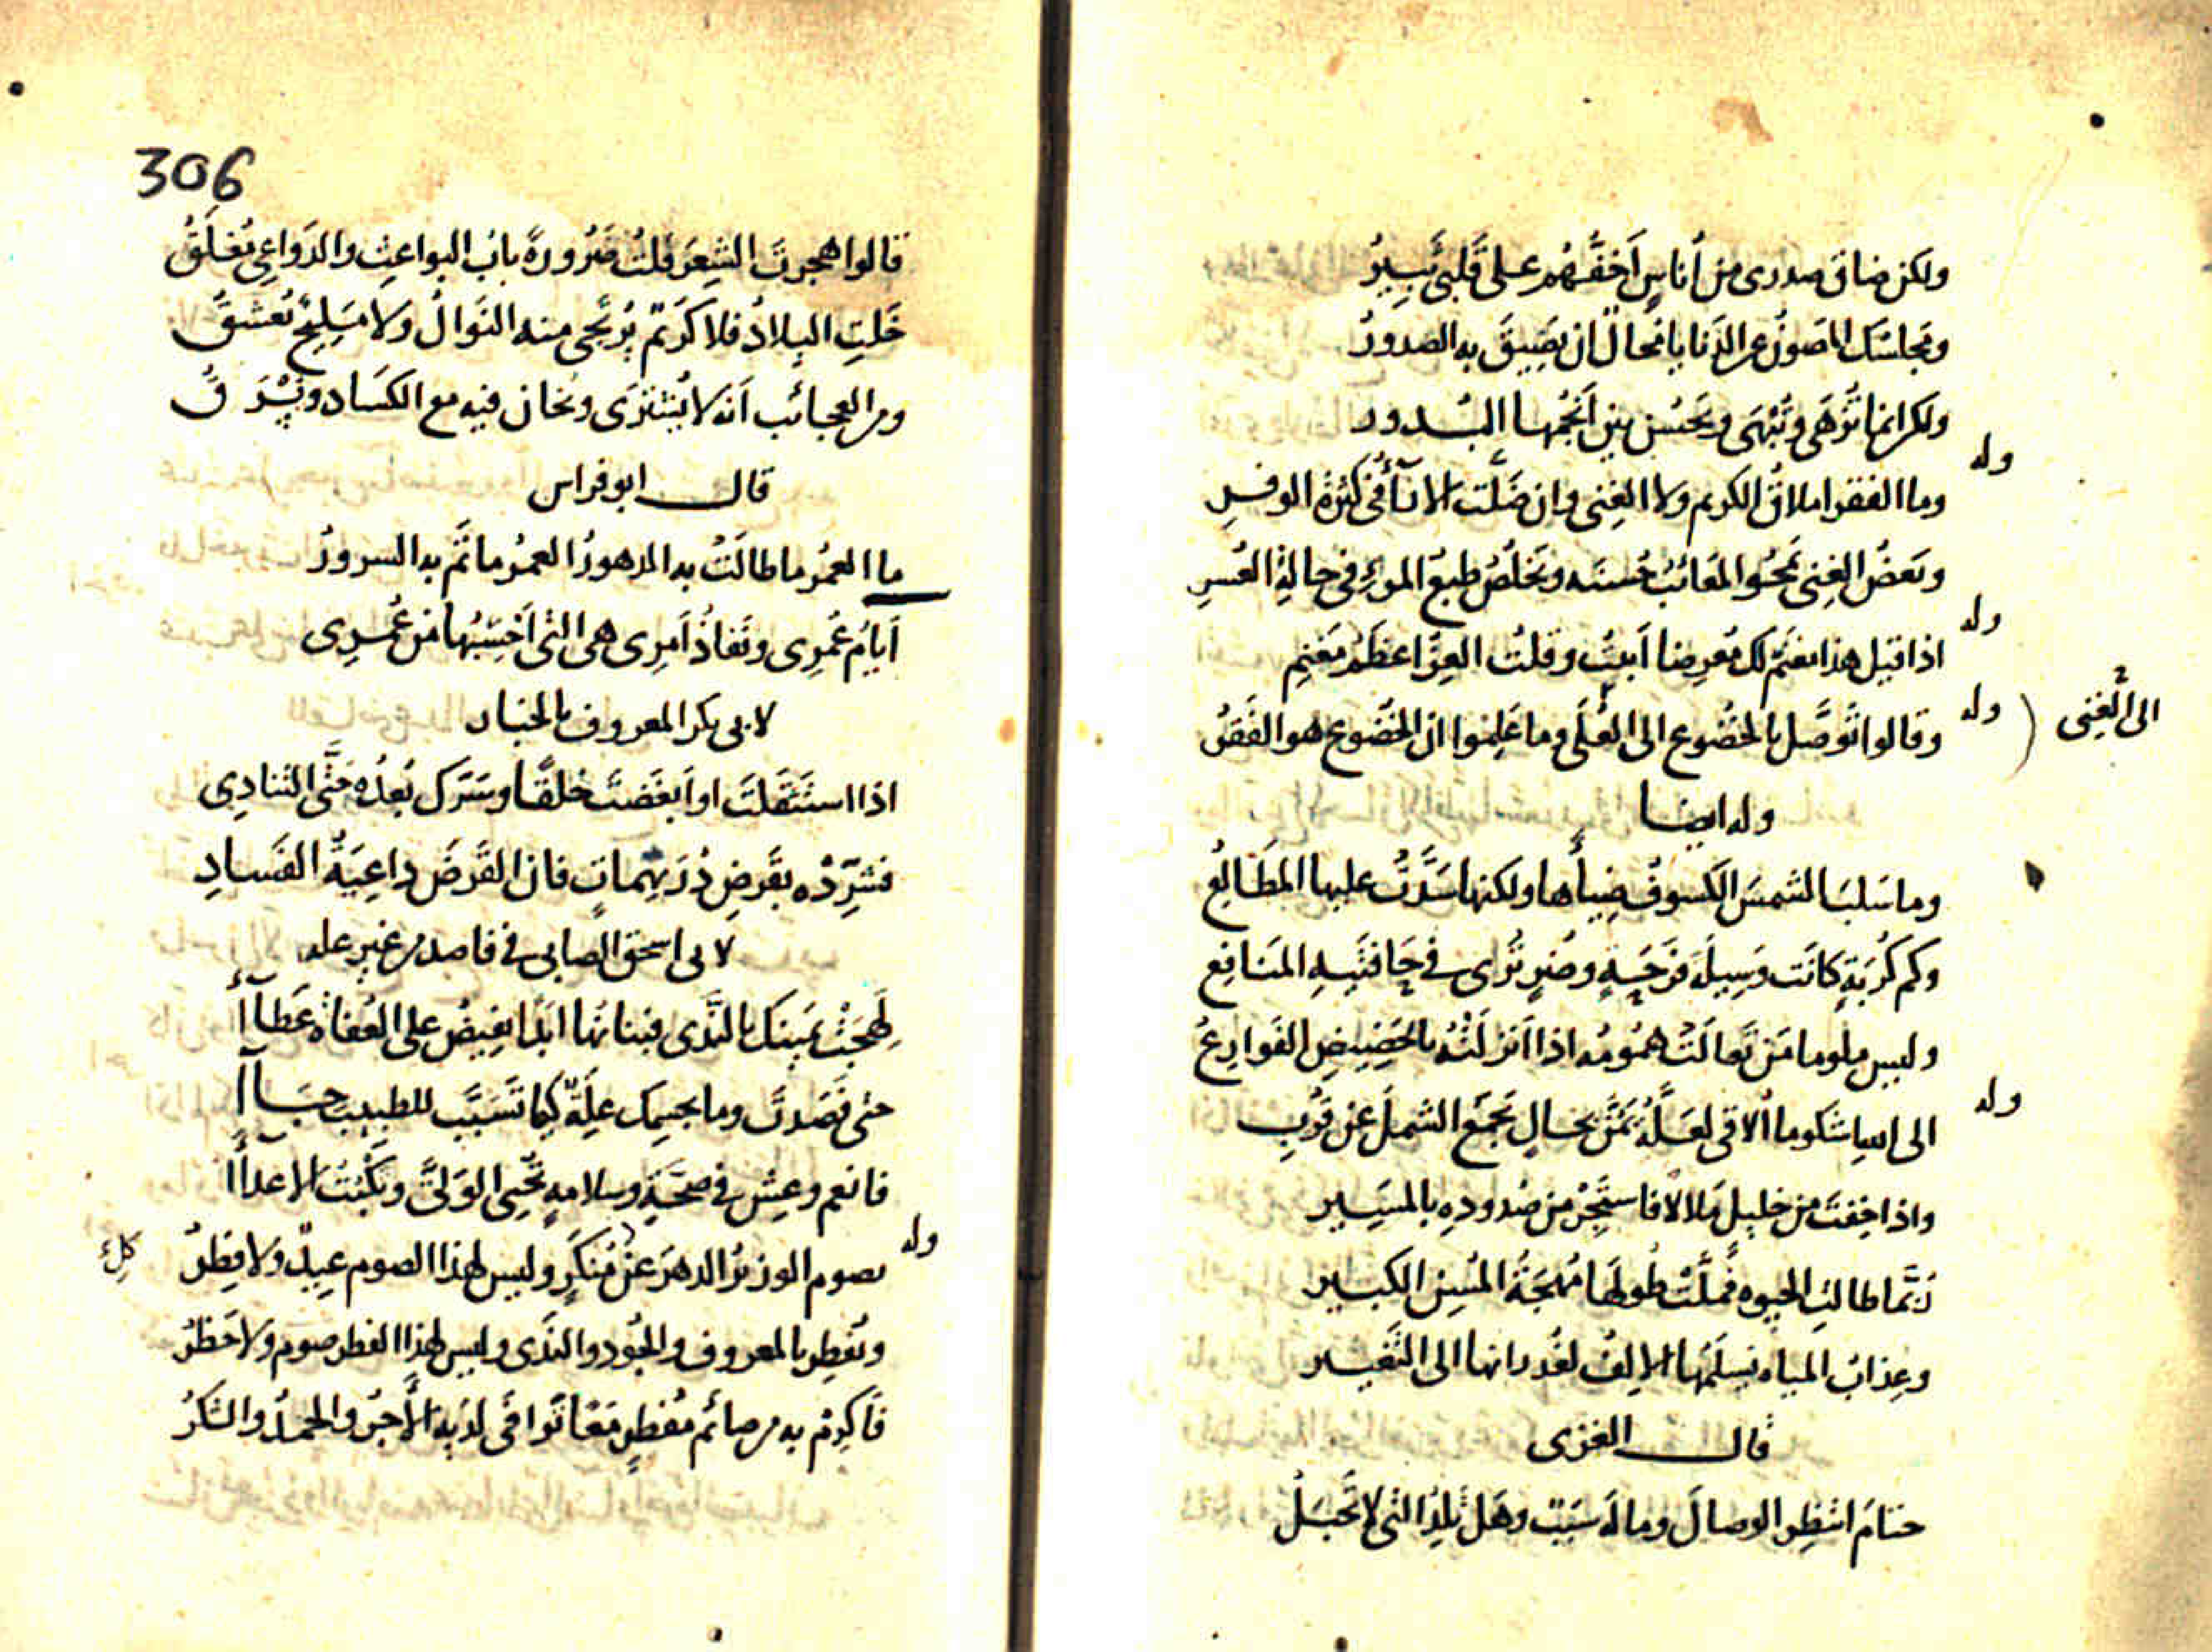 ولكن ضاق صدري من أناس أخفهم على قلبي ثبير
ومجلسك المصون عن الدنايا محال ان يضيق به الصدور
ولكن انما تزهى وتبهى ويحسن بين أنجمها البدور
وله
وما الفقر املاق الكريم ولا الغنى وان ضلت الآراء في كثرة الوفر
وبعض الغنى يمحو المعائب حسنه ويخلص طبع المرء في حالة العسر
وله
اذا قيل هذا مغنم لك معرضا أبيت وقلت العز اعظم مغنم
وله
وقالوا توصل بالخضوع الى العلى وما علموا ان الخضوع هو الفقر
الى الغنى
وله ايضا
وما سلب الشمس الكسوف ضياءها ولكنها سدت عليها المطالع
وكم كربة كانت وسيلة فرحة وضر ترى في حافتيه المنافع
وليس ملوما من تعالت همومه اذا انزلته بالحضيض القوارع
وله
الى الله اشكو ما ألاقي لعله يمن بحال تجمع الشمل عن قرب
واذا خفت من خليل ملالا فاستجر من صدوده بالمسير
ربما طالت الحيوه فملت طولها مهجة المسن الكبير
وعذاب المياه يسلمها الالف لغدرانها الى التغيير
قال الغزى
حتام انتظر الوصال وماله سبب وهل تلد التي لا تحبل
306
قالوا هجرت الشعر قلت ضرورة باب البواعث والدواعي مغلق
خلت البلاد فلا كريم يرتجى منه النوال ولا مليح تعشق
ومن العجائب انه لا يشترى ويخان فيه مع الكساد ويسرق
قال ابو فراس
ما العمر ما طالت به الدهور العمر ما تم به السرور
أيام عمري ونفاذ أمري هي التي احسبها من عمري
لابي بكر المعروف بالخباز
اذا استثقلت او ابغضت خلقا وسرك بعده حتى التنادي
فشرده بقرض دريهمات فان القرض داعية الفساد
لابي اسحق الصابي في فاصد من غير علة
لهجت يمينك بالندى فبنانها ابدا يفيض على العفاة عطاء
حتى فصدت وما بجسمك علة كيما تسبب للطبيب حباء
فانعم وعش في صحة وسلامة تحيي الولي وتكبت الاعداء
وله
يصوم الوزير الدهر عن منكر وليس لهذا الصوم عيد ولا فطر
كل
ويفطر بالمعروف والجود والندى وليس لهذا الفطر صوم ولا حظر
فأكرم به من صائم مفطر معا توافى لديه الأجر والحمد والشكر